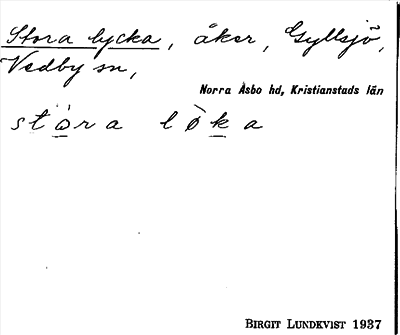 Stora lycka, åker, Gyllsjö,
Vedby sn,
Norra Åsbo hd, Kristianstads län
stòra lòka
BIRGIT LUNDKVIST 1937